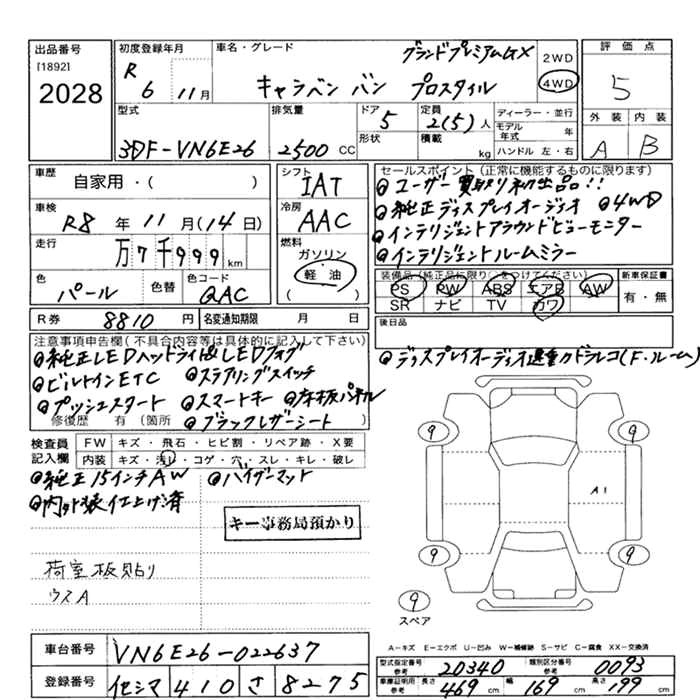 出品番号
[1892]
2028
初度登録年月
R 6 11月
車名・グレード
グランドプレミアムGX
キャラバン バン プロスタイル
2WD
4WD
評価点
5
外装 内装
A B
型式
3DF-VN6E26
排気量
2500 CC
ドア
5
形状
定員
2(5)人
積載
kg
ディーラー・並行
モデル年式 年
ハンドル 左・右
車歴
自家用・( )
車検
R8 年 11 月(14日)
走行
万7千999km
色
パール
色替
色コード
QAC
シフト
IAT
冷房
AAC
燃料
ガソリン
軽油
( )
セールスポイント(正常に機能するものに限ります)
ユーザー買取り初出品!!
純正ディスプレイオーディオ 4WD
インテリジェントアラウンドビューモニター
インテリジェントルームミラー
装備品(純正品に限り○をつけてください)
PS PW ABS エアB AW
SR ナビ TV カワ
新車保証書
有・無
R券 8810 円
名変通知期限 月 日
後日品
ディスプレイオーディオ連動ドラレコ(F・ルーム)
注意事項申告欄(不具合内容等は具体的に記入して下さい)
純正LEDヘッドライト LEDフォグ
ビルトインETC ステアリングスイッチ
プッシュスタート スマートキー 床板パネル
修復歴 有(箇所 ブラックレザーシート
検査員記入欄
FW キズ・飛石・ヒビ割・リペア跡・X要
内装 キズ・汚レ・コゲ・穴・スレ・キレ・破レ
純正15インチAW バイザーマット
内外装仕上げ済
キー事務局預かり
荷室板貼り
ウスA
9
9
A1
9
9
9
スペア
A-キズ E-エクボ U-凹み W-補修跡 S-サビ C-腐食 XX-交換済
車台番号 VN6E26-022637
登録番号 410 さ 8275
型式指定番号 参考 20340
類別区分番号 参考 0093
車庫証明用 参考 長さ 469 cm 幅 169 cm 高さ 199 cm